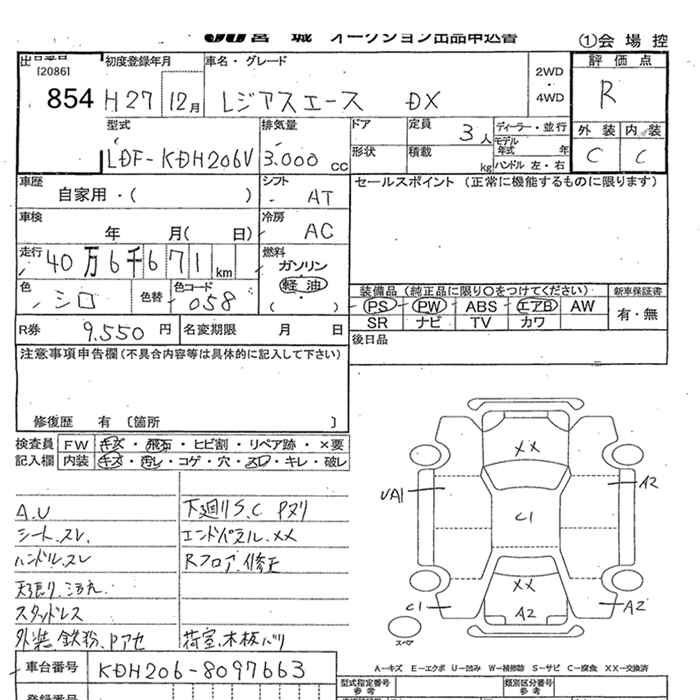 JU宮城 オークション出品申込書
①会場控
出品番号 [2086] 854
初度登録年月 H27 12月
車名・グレード レジアスエース DX
2WD ・ 4WD
評価点 R
外装 C 内装 C
型式 LDF-KDH206V
排気量 3.000 CC
ドア
形状
定員 3人
積載 kg
ディーラー・並行
モデル年式 年
ハンドル 左・右
車歴 自家用・( )
シフト AT
セールスポイント (正常に機能するものに限ります)
車検 年 月( 日)
冷房 AC
走行 40万6千671km
燃料 ガソリン 軽油 ( )
色 シロ 色替 色コード 058
装備品(純正品に限り○をつけてください)
新車保証書
PS PW ABS エアB AW
有・無
SR ナビ TV カワ
R券 9,550円 名変期限 月 日
後日品
注意事項申告欄(不具合内容等は具体的に記入して下さい)
修復歴 有 〔箇所 〕
検査員記入欄
FW キズ・飛石・ヒビ割・リペア跡・×要
内装 キズ・汚し・コゲ・穴・スレ・キレ・破レ
A.U
シート.スレ.
ハンドル.スレ
天張り.汚れ.
スタッドレス
外装鉄粉.Pアセ
下廻りS.C Pヌリ
エンドパネル.XX
Rフロア.修正
荷室.木板バリ
XX
UA1
A2
C1
XX
C1
A2
A2
スペア
A-キズ E-エクボ U-凹み W-補修跡 S-サビ C-腐食 XX-交換済
車台番号 KDH206-8097663
型式指定番号 参考
類別区分番号 参考
登録番号